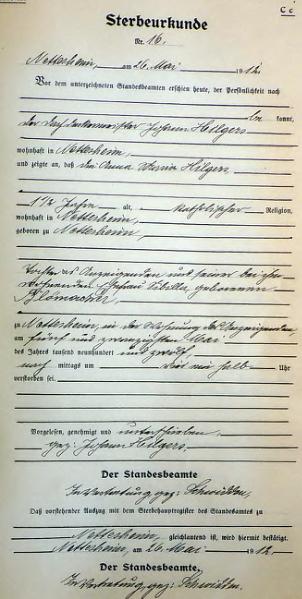 C c
Sterbeurkunde
Nr. 16.
Nettersheim, am 26. Mai 1912.
Vor dem unterzeichneten Standesbeamten erschien heute, der Persönlichkeit nach
kannt,
der Dachdeckermeister Johann Hilgers
wohnhaft in Nettersheim,
und zeigte an, daß die Anna Maria Hilgers,
1 1/2 Jahre alt, katholischer Religion,
wohnhaft in Nettersheim,
geboren zu Nettersheim,
Tochter des Anzeigenden und seiner bei ihm
wohnenden Ehefrau Sibilla, geborenen
zu Nettersheim, in der Wohnung des Anzeigenden,
am fünf und zwanzigsten Mai
des Jahres tausend neunhundert und zwölf
nach mittags um halb Uhr
verstorben sei.
Vorgelesen, genehmigt und unterschrieben
gez: Johann Hilgers.
Der Standesbeamte
In Vertretung, gez:
Daß vorstehender Auszug mit dem Sterbehauptregister des Standesamtes zu
Nettersheim, gleichlautend ist, wird hiermit bestätigt.
Nettersheim, am 26. Mai 1912.
Der Standesbeamte.
In Vertretung, gez: